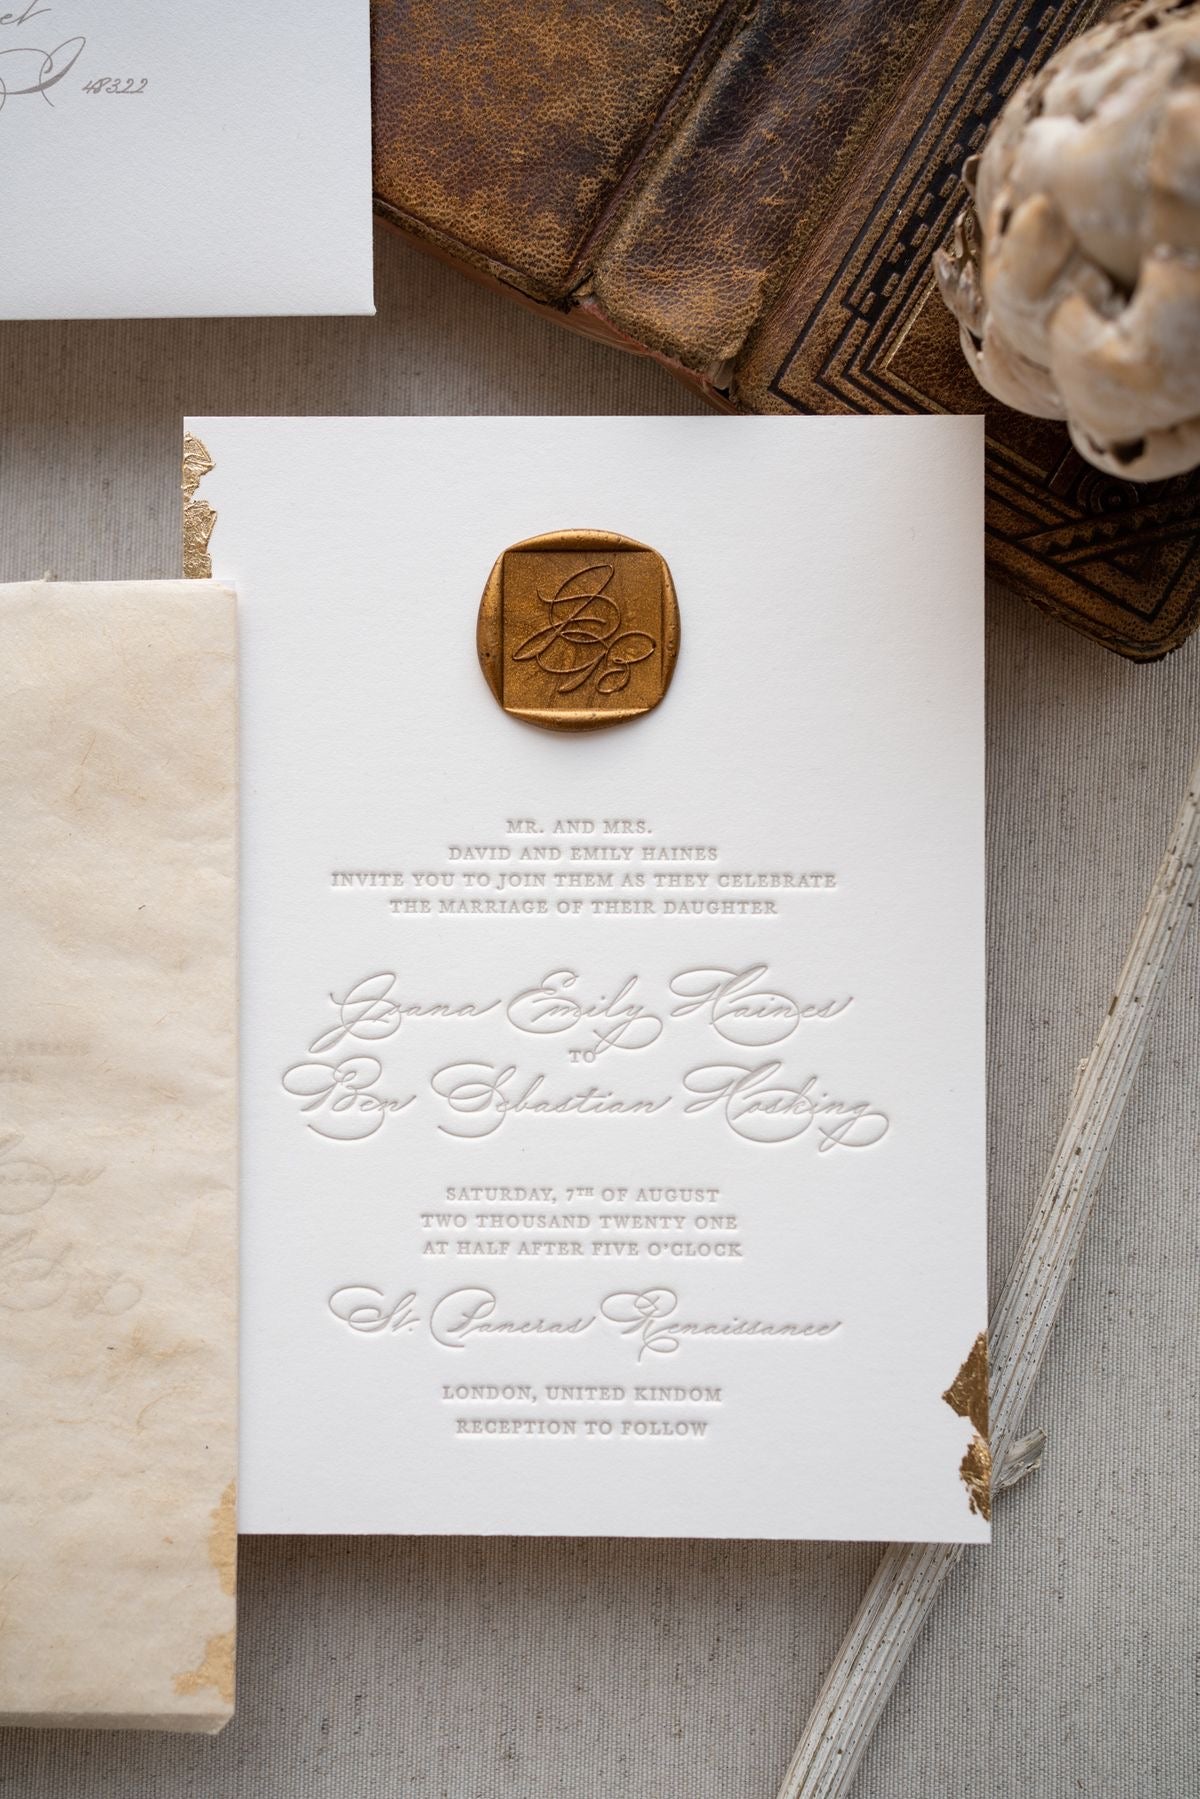 48322
MR. AND MRS.
DAVID AND EMILY HAINES
INVITE YOU TO JOIN THEM AS THEY CELEBRATE
THE MARRIAGE OF THEIR DAUGHTER
Joana Emily Haines
TO
Ben Sebastian Hosking
SATURDAY, 7TH OF AUGUST
TWO THOUSAND TWENTY ONE
AT HALF AFTER FIVE O'CLOCK
St. Pancras Renaissance
LONDON, UNITED KINDOM
RECEPTION TO FOLLOW